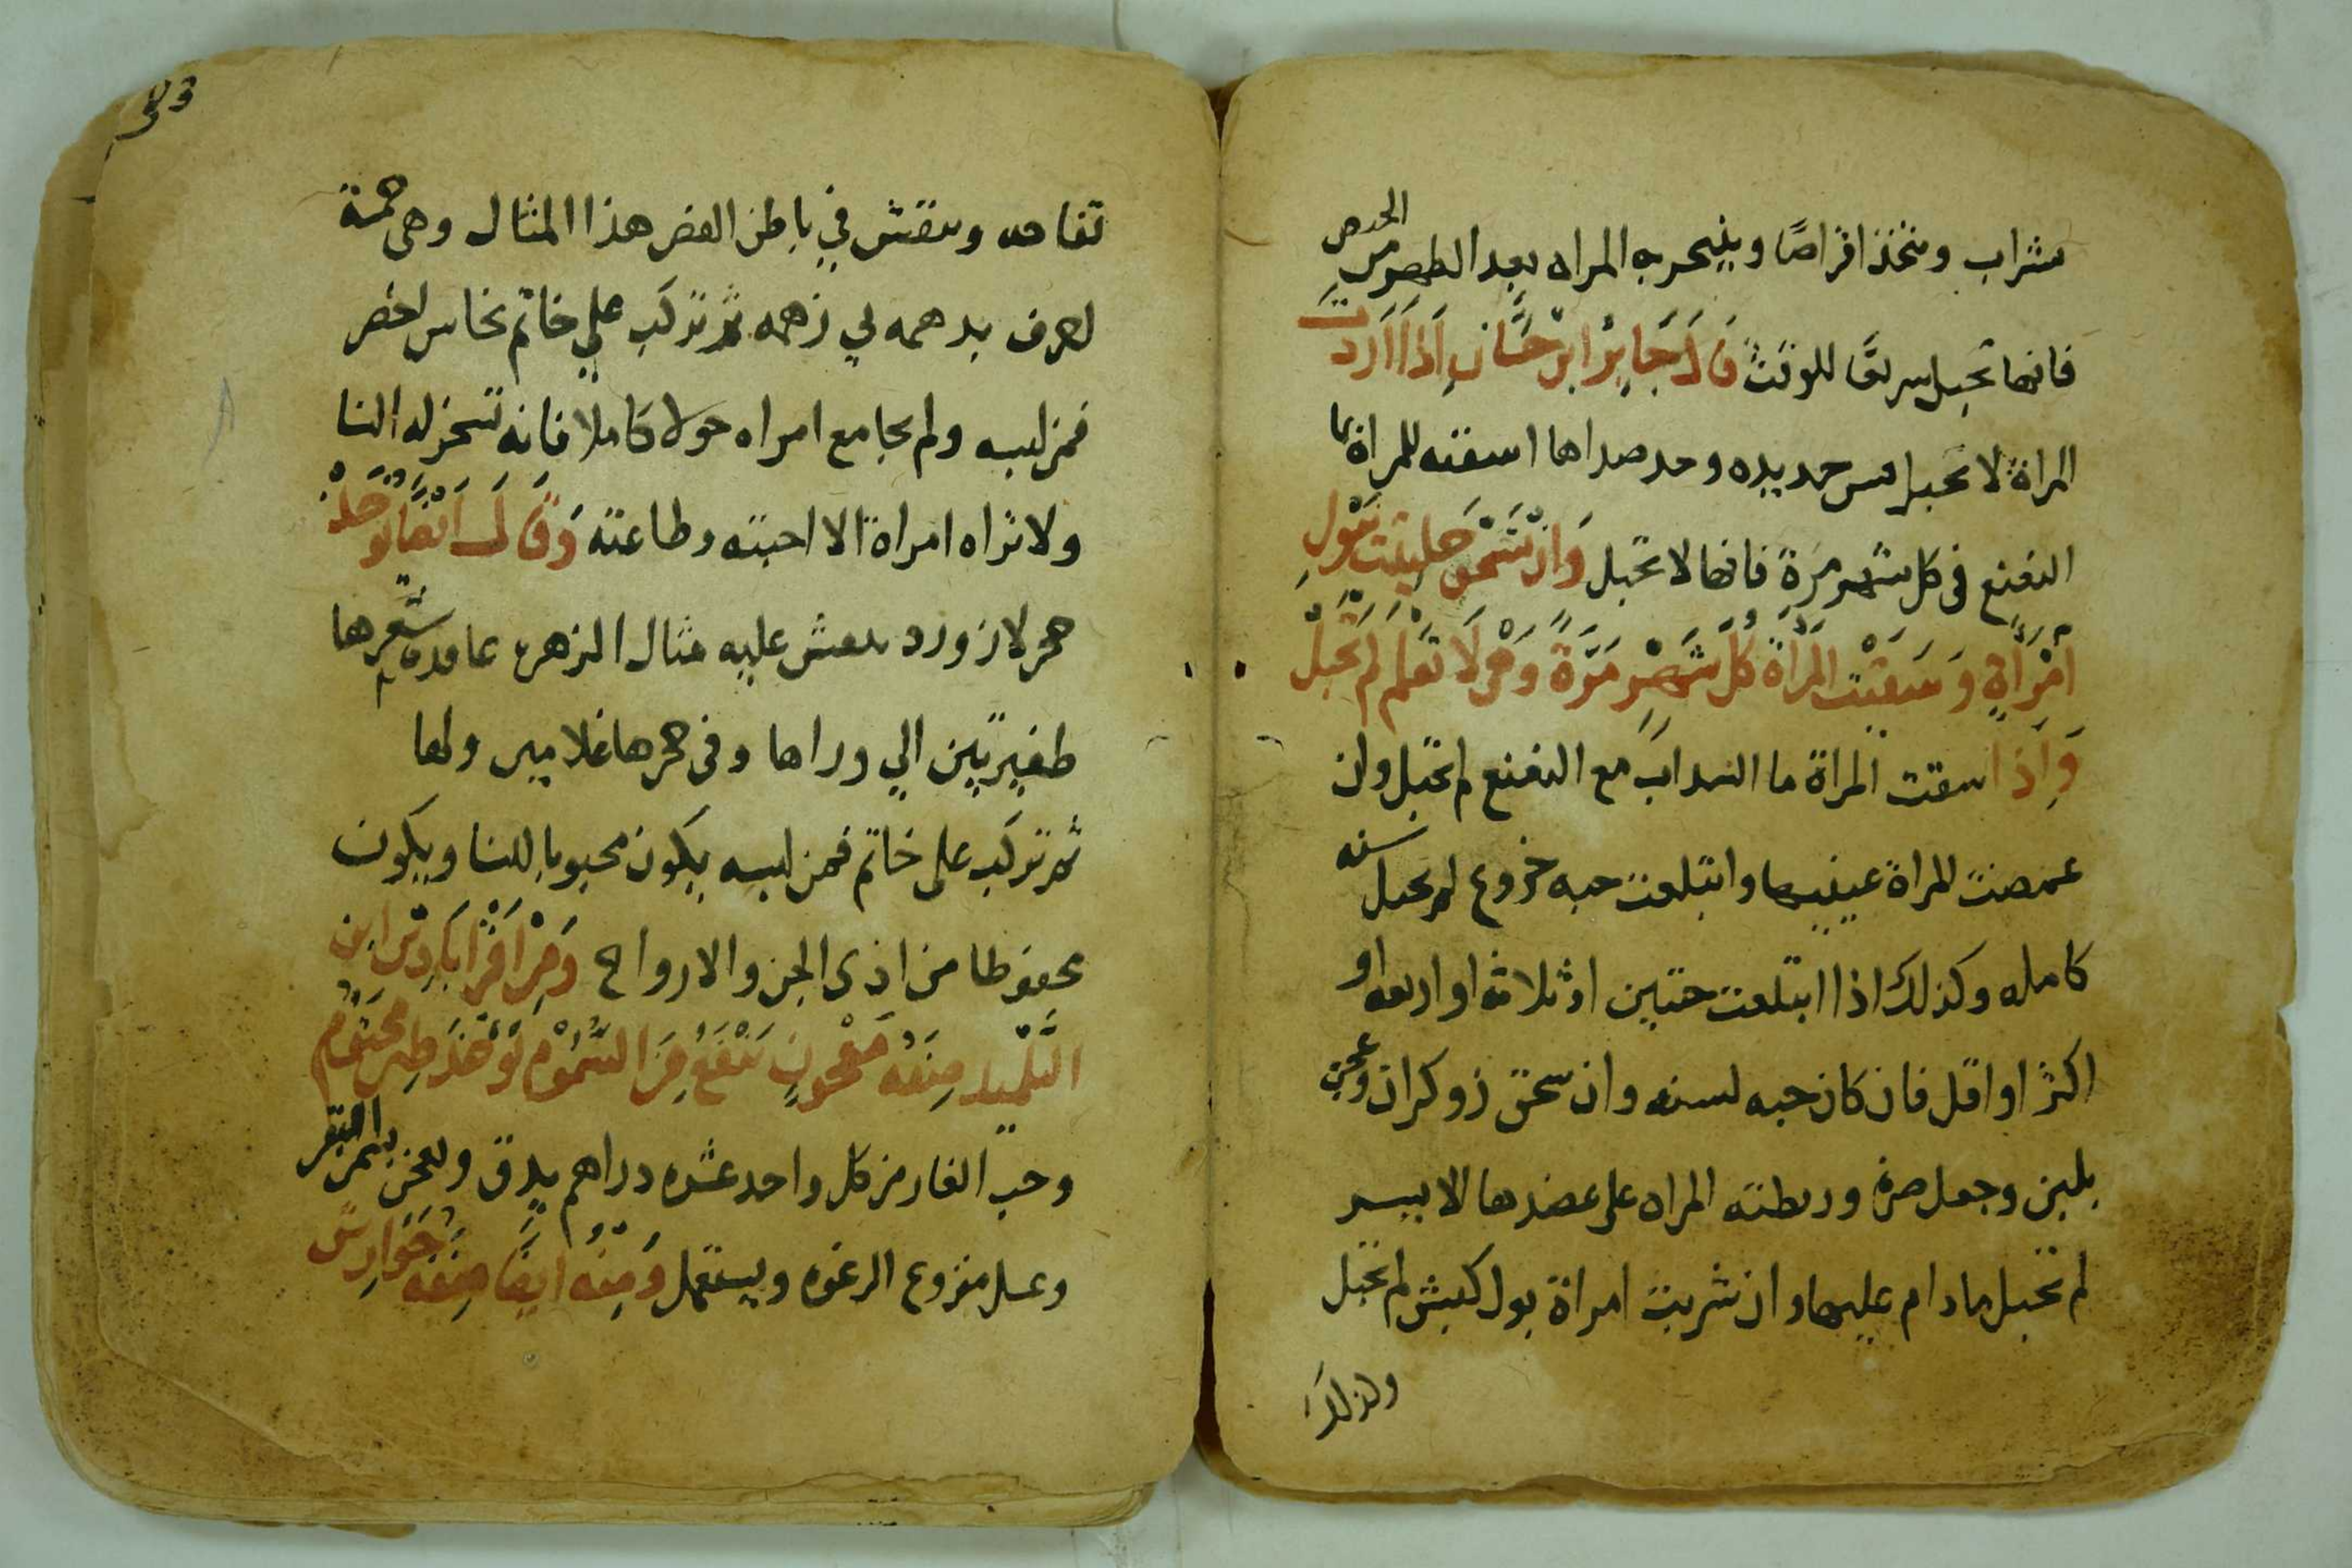 شراب ويتخذ اقراصًا ويتبخر به المراه بعد الطهر من الحيض
فانها تحبل سريعًا للوقت قَالَ جَابِرُ ابْنُ حَيَّان اَذَا اَرَدت
المراة لا تحبل حديده وخد صداها اسقته للمراة بما
النعنع فى كل شهر مَرة فانها لا تحبل وَاِنْ شَمَّ حِلتِيت بَبَوْلِ
اِمْرَاَةٍ وَسَقَيْتَ المَرْاَةَ كُلَّ شَهْرٍ مَرَّةً وَهْىَ لَا تَعْلَم لَمْ تَحْبَلْ
وَاِذَا سقت المراة ما السداب مع النعنع لم تحبل وان
غمضت المراة عينيها وابتلعت حبه خروع لم تحبل سنه
كامله وكذلك اذا ابتلعت حبتين او ثلاثه او اربعه او
اكثر او اقل فان كان حبه لسنه وان سحق زوكران وعجن
بلبن وجعل صرة وربطته المراه على عضدها الايسر
لم تحبل ما دام عليها وان شربت امراة بول كبش لم تحبل
وكذلك
تفاحه وينقش في باطن الفص هذا المثال وهى خمسة
احرف ثم تركب على خاتم نحاس اخضر
فمن لبسه ولم يجامع امراه حولا كاملا فانه تسخر له النسا
ولا تراه امراة الا احبته وطاعته وَقَالَ اَيْضًا يُوخَذْ
حجر لازورد ينقش عليه مثال الزهره عاقدة شعرها
ظفيرتين الي وراها وفى حجرها غلامين ولها
ثم تركب على خاتم فمن لبسه يكون محبوبا للنسا ويكون
محفوظا من اذى الجن والارواح وَمِنْ اَقْرَابَادِينَ ابن
التَّلْمِيد صِفَهُ مَعْجُونٍ يَنْفَعُ مِنَ السُّمُوْمِ يُوْخَذ طِين مَخْتُوم
وحب الغار من كل واحد عشره دراهم يدق ويعجن بسمن البقر
وعسل منزوع الرغوه ويستعمل وَمِنْهُ ايضًا صِفَهُ جَوَارِش